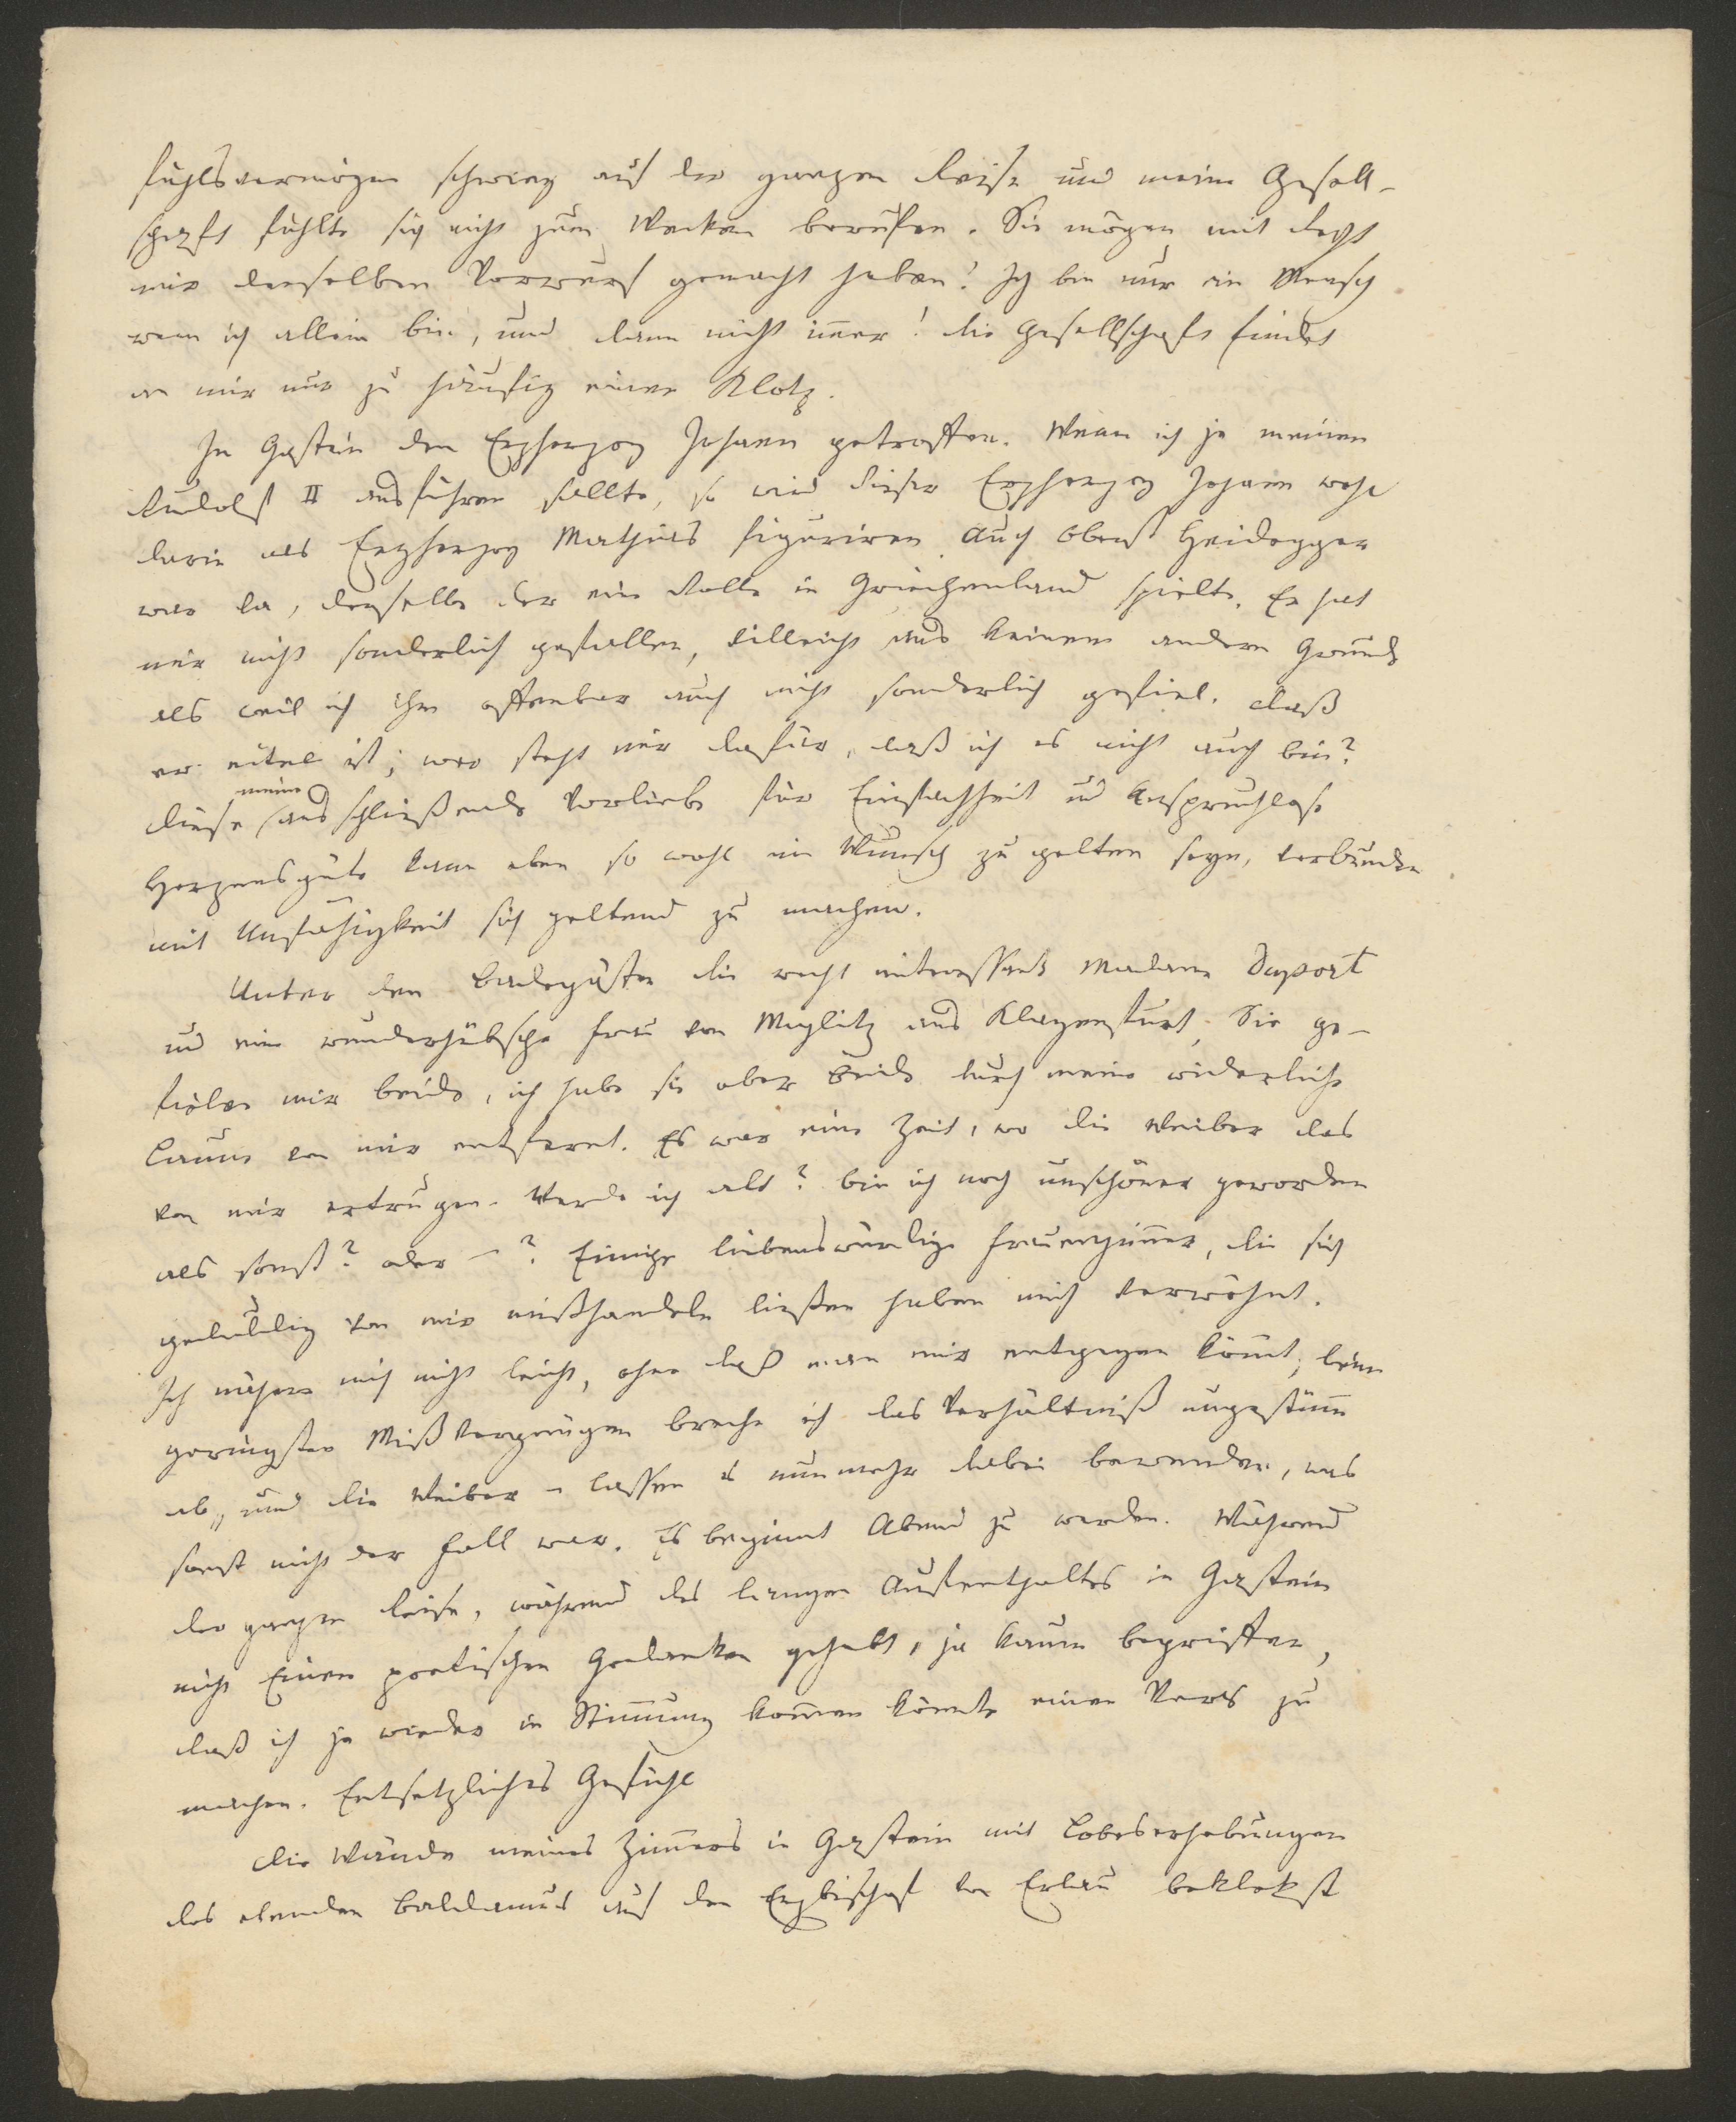 fühlsvermögen schwieg auf der ganzen Reise und meine Gesell-
schaft fühlte sich nicht zum Wecken berufen. Sie mögen mit Recht
mir denselben Vorwurf gemacht haben! Ich bin nur ein Mensch
wenn ich allein bin, und dann nicht im̅er! die Gesellschaft findet
an mir nur zu häufig einen Klotz.
In Gastein den Erzherzog Johann getroffen. Wenn ich je meinen
Rudolf II ausführen sollte, so wird dieser Erzherzog Johann wohl
darin als Erzherzog Mathias figuriren. Auch Oberst Heidegger
war da, derselbe der eine Rolle in Griechenland spielte. Er hat
mir nicht sonderlich gefallen, villeicht aus keinem andern Grunde
als weil ich ihm offenbar auch nicht sonderlich gefiel. daß
er eitel ist; wer steht mir dafür, daß ich es nicht auch bin?
meine
diese ausschließende Vorliebe für Einfachheit und Anspruchlose
Herzensgüte kann eben so wohl ein Wunsch zu gelten seyn, verbunden
mit Unfähigkeit sich geltend zu machen.
Unter den Badegästen die recht interessante Madame Duport
und eine wunderhübsche Frau von Moglitz aus Klagenfurt. Sie ge-
fielen mir beide, ich habe sie aber beide durch meine widerliche
Laune von mir entfernt. Es war eine Zeit, wo die Weiber das
von mir ertrugen. Werde ich alt? bin ich noch unschöner geworden
als sonst? oder –? Einige liebenswürdige Frauenzim̅er, die sich
geduldig von mir mißhandeln ließen haben mich verwöhnt.
Ich nähere mich nicht leicht, ohne daß man mir entgegen köm̅t, beim
geringsten Mißvergnügen breche ich das Verhältniß ungestüm̅
ab, und die Weiber – lassen es nunmehr dabei bewenden, was
sonst nicht der Fall war. Es beginnt Abend zu werden. Während
der ganzen Reise, während des langen Aufenthaltes in Gastein
nicht Einen poetischen Gedanken gehabt, ja kaum begriffen,
daß ich je wieder in Stim̅ung kom̅en könnte einen Vers zu
machen. Entsetzliches Gefühl
die Wände meines Zim̅ers in Gastein mit Lobeserhebungen
des elenden Baldamus auf den Erzbischof von Erlau bekleckst